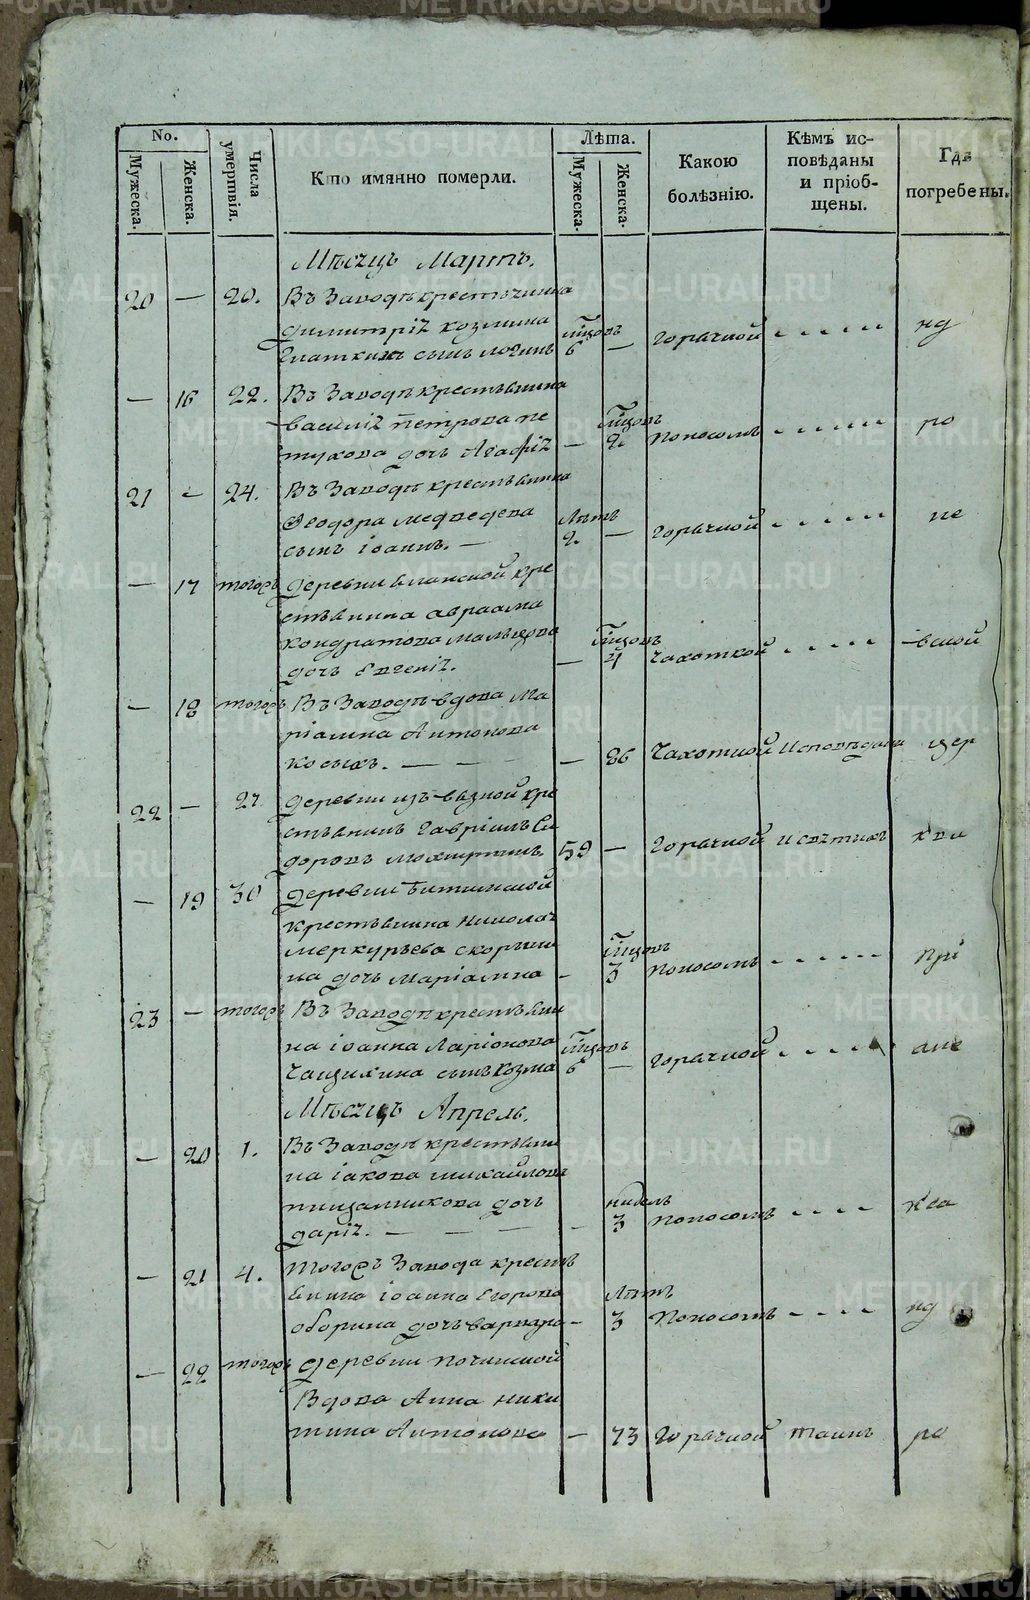 No.
Мужеска.
Женска.
Числа умертвія.
Кто имянно померли.
Лѣта.
Мужеска.
Женска.
Какою
болѣзнію.
Кѣмъ ис-
повѣданы
и пріоб-
щены.
Гдѣ
погребены.
Мѣсяцъ Мартъ.
20 — 20. Въ Заводѣ крестьянина
Димитрія Козмина мѣсяцовъ
сынъ Логинъ 6 — горячкой нд
— 16 22. Въ Заводѣ крестьянина
Василія Петрова Пе мѣсяцовъ
тухова дочь Агафія — 2 поносомъ ро
21 — 24. Въ Заводѣ крестьянина
Ѳеодора Медведева Лѣтъ
сынъ Іоаннъ. — 2. — горячкой не
— 17 тогожъ Деревни кре
стьянина Авраама
Кондратова Мальцова мѣсяцовъ
дочь Евгенія. — 4 чахоткой вской
— 18 тогожъ Въ Заводѣ вдова Ма
ріамна Антонова
Косыхъ. — — 86 Чахоткой Исповѣдан цер
22 — 27 Деревни кре
стьянинъ Гавріилъ Си
доровъ 59 — Горячкой и святыхъ кви
— 19 30 Деревни
крестьянина Николая
Меркурьева Скоры мѣсяцовъ
на дочь Маріамна — 3 поносомъ при
23 — тогожъ Въ Заводѣ крестьяни
на Іоанна Ларіонова мѣсяцовъ
Чащихина сынъ Козма 6 — горячкой
Мѣсяцъ Апрель.
— 20 1. Въ Заводѣ крестьяни
на Іакова Михайлова
Пищальникова дочь недель
Дарія. — — — 3 поносомъ
— 21 4. Тогожъ Завода кресть
янина Іоанна Егорова Лѣтъ
Оборина дочь Варвара — 3 Поносомъ нд
— 22 тогожъ Деревни Починской
Вдова Анна Ники
тина Антонова — 73 Горячкой таинъ ро
METRIKI.GASO-URAL.RU